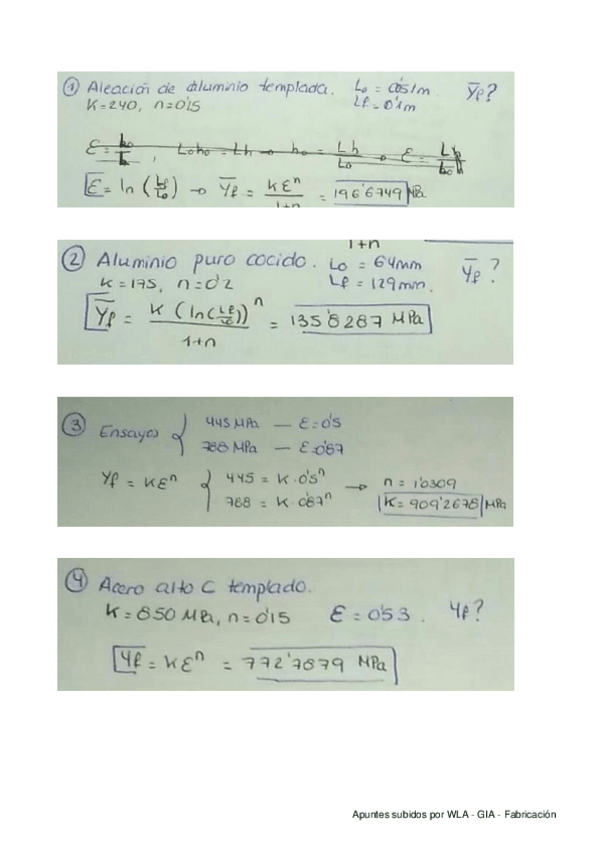 ① Aleación de aluminio templada. L₀ = 0'051m Ȳf?
K=240, n=0'15 Lf = 0'1m
L₀h₀ = Lh → h₀ = Lh/L₀ →
ε = ln (Lf/L₀) → Ȳf = Kεⁿ/1+n = 196'6749 MPa
1+n
② Aluminio puro cocido. L₀ = 64mm Ȳf?
K=175, n=0'2 Lf = 129mm.
Ȳf = K (ln(Lf/L₀))ⁿ/1+n = 135'8287 MPa
③ Ensayos { 445 MPa — ε=0'5
788 MPa — ε=0'87
Yf = Kεⁿ { 445 = K·0'5ⁿ → n = 1'0309
788 = K·0'87ⁿ K = 909'2678 MPa
④ Acero alto C templado.
K=850 MPa, n=0'15 ε = 0'53. Yf?
Yf = Kεⁿ = 772'7879 MPa
Apuntes subidos por WLA - GIA - Fabricación